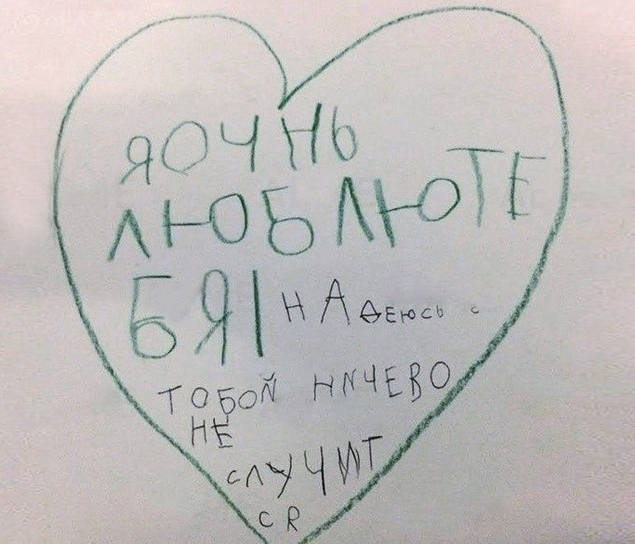 ЯОЧНЬ
ЛЮБЛЮТЕ
БЯ! НАДЕЮСЬ С
ТОБОЙ НИЧЕВО
НЕ
СЛУЧИТ
СЯ